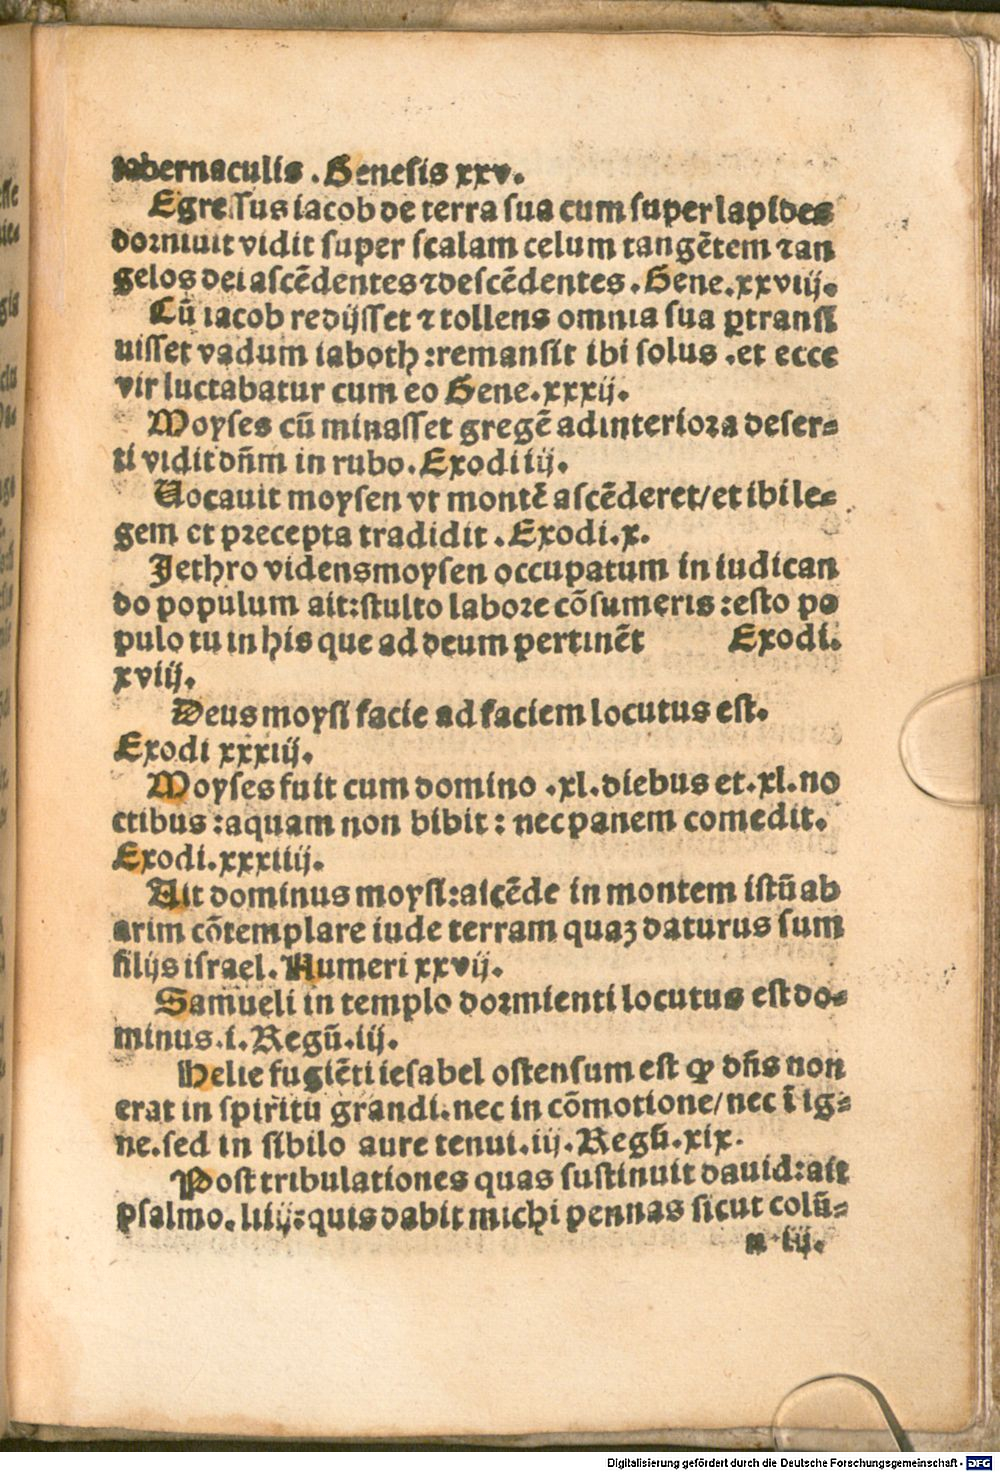 tabernaculis .Genesis xxv.
Egressus iacob de terra sua cum super lapides
dormiuit vidit super scalam celum tangētem ⁊ an
gelos dei ascēdentes ⁊ descēdentes .Gene.xxviij.
Cū iacob redijsset ⁊ tollens omnia sua ꝑtransi
uisset vadum iaboth :remansit ibi solus .et ecce
vir luctabatur cum eo Gene.xxxij.
Moyses cū minasset gregē ad interiora deser-
ti vidit dn̄m in rubo.Exodi iij.
Uocauit moysen vt montē ascēderet/et ibi le-
gem et precepta tradidit .Exodi.x.
Jethro videns moysen occupatum in iudican
do populum ait:stulto labore cōsumeris :esto po
pulo tu in his que ad deum pertinēt Exodi.
xviij.
Deus moysi facie ad faciem locutus est.
Exodi xxxiij.
Moyses fuit cum domino .xl.diebus et.xl.no
ctibus :aquam non bibit : nec panem comedit.
Exodi.xxxiiij.
Ait dominus moysi:ascēde in montem istū ab
arim cōtemplare iude terram quaꝫ daturus sum
filijs israel.Numeri xxvij.
Samueli in templo dormienti locutus est do-
minus.i.Regū.iij.
Helie fugiēti iesabel ostensum est ꝙ dn̄s non
erat in spiritu grandi.nec in cōmotione/nec ī ig-
ne.sed in sibilo aure tenui.iij.Regū.xix.
Post tribulationes quas sustinuit dauid:ait
psalmo.liiij:quis dabit michi pennas sicut colū-
n iij.
Digitalisierung gefördert durch die Deutsche Forschungsgemeinschaft - DFG